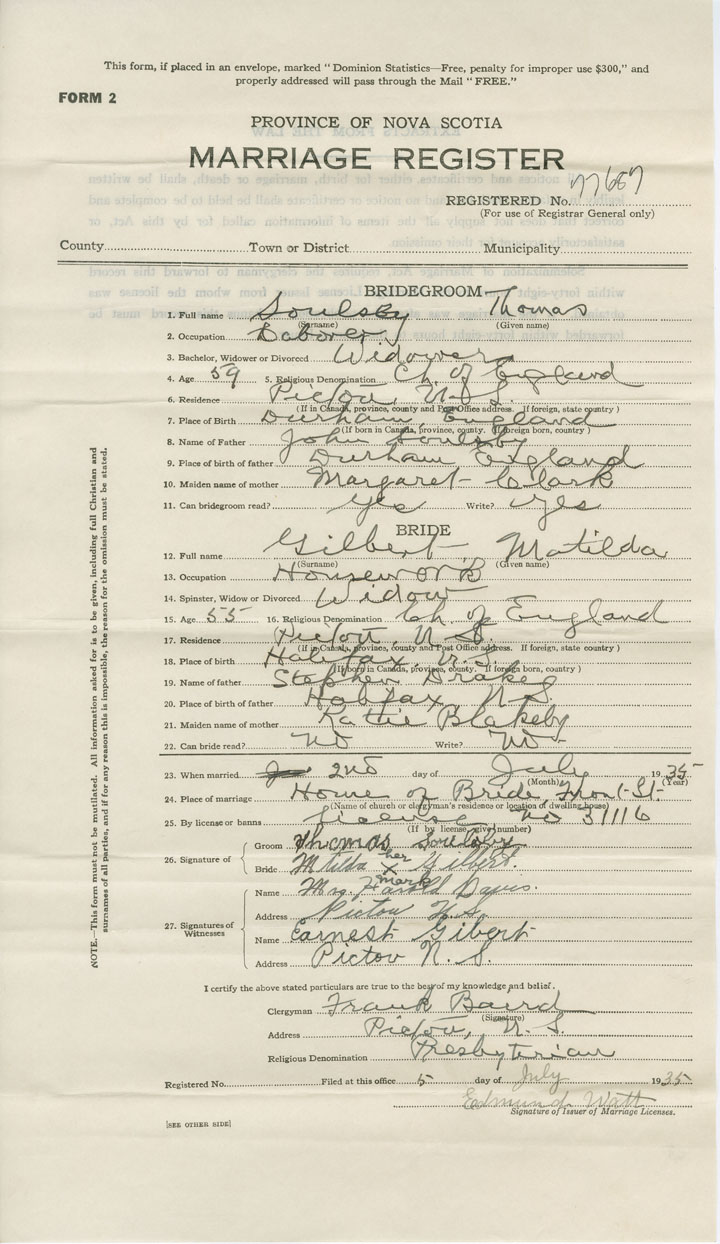 This form, if placed in an envelope, marked "Dominion Statistics—Free, penalty for improper use $300," and
properly addressed will pass through the Mail "FREE."
FORM 2
PROVINCE OF NOVA SCOTIA
MARRIAGE REGISTER
REGISTERED No. 77687
(For use of Registrar General only)
County Town or District Municipality
BRIDEGROOM
1. Full name Soulsby Thomas
(Surname) (Given name)
2. Occupation Laborer
3. Bachelor, Widower or Divorced Widower
4. Age 59 5. Religious Denomination Ch. of England
6. Residence Pictou, N.S.
(If in Canada, province, county and Post Office address. If foreign, state country)
7. Place of Birth Durham, England
(If born in Canada, province, county. If foreign born, country)
8. Name of Father John Soulsby
9. Place of birth of father Durham England
10. Maiden name of mother Margaret Clark
11. Can bridegroom read? Yes Write? Yes
BRIDE
12. Full name Gilbert Matilda
(Surname) (Given name)
13. Occupation Housework
14. Spinster, Widow or Divorced Widow
15. Age 55 16. Religious Denomination Ch. of England
17. Residence Pictou, N.S.
(If in Canada, province, county and Post Office address. If foreign, state country)
18. Place of birth Halifax, N.S.
(If born in Canada, province, county. If foreign born, country)
19. Name of father Stephen Drake
20. Place of birth of father Halifax, N.S.
21. Maiden name of mother Kattie Blakeby
22. Can bride read? No Write? No
23. When married 2nd day of July 1935
(Month) (Year)
24. Place of marriage Home of Bride, Front St.
(Name of church or clergyman's residence or location of dwelling house)
25. By license or banns license No 31116
(If by license, give number)
26. Signature of
Groom Thomas Soulsby
Bride Mtilda her X mark Gilbert.
27. Signatures of Witnesses
Name Mrs. Harold Davis.
Address Pictou N.S.
Name Earnest Gibert
Address Pictov N. S.
I certify the above stated particulars are true to the best of my knowledge and belief.
Clergyman Frank Baird
(Signature)
Address Pictou, N.S.
Religious Denomination Presbyterian
Registered No. Filed at this office 5 day of July 1935
Edmund Watt
Signature of Issuer of Marriage Licenses.
[SEE OTHER SIDE]
NOTE.—This form must not be mutilated. All information asked for is to be given, including full Christian and
surnames of all parties, and if for any reason this is impossible, the reason for the omission must be stated.